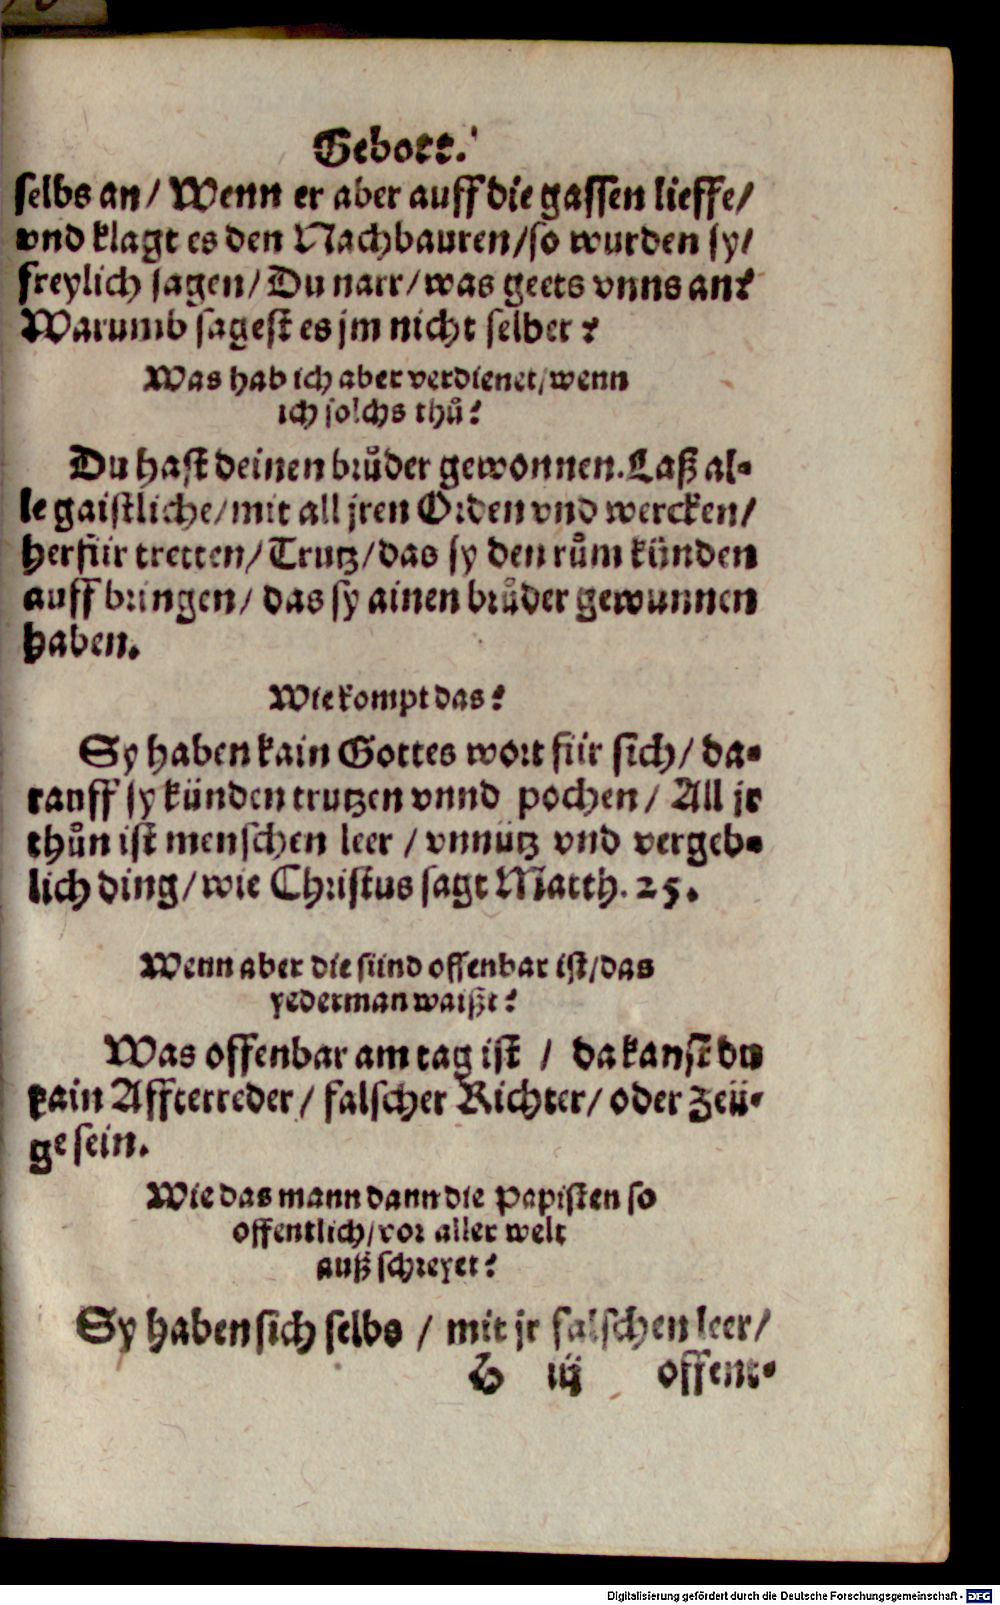 Gebott.
selbs an / Wenn er aber auff die gassen lieffe /
vnd klagt es den Nachbauren / so wurden sy /
freylich sagen / Du narr / was geets vnns an?
Warumb sagest es jm nicht selber?
Was hab ich aber verdienet / wenn
ich solchs thuͦ?
Du hast deinen bruͦder gewonnen. Laß al-
le gaistliche / mit all jren Orden vnd wercken /
herfür tretten / Trutz / das sy den ruͦm künden
auff bringen / das sy ainen bruͦder gewunnen
haben.
Wie kompt das?
Sy haben kain Gottes wort für sich / da-
rauff sy künden trutzen vnnd pochen / All jr
thuͦn ist menschen leer / vnnütz vnd vergeb-
lich ding / wie Christus sagt Matth. 25.
Wenn aber die sünd offenbar ist / das
yederman waißt?
Was offenbar am tag ist / da kanst du
kain Affterreder / falscher Richter / oder Zeü-
ge sein.
Wie das mann dann die Papisten so
offentlich / vor aller welt
auß schreyet?
Sy haben sich selbs / mit jr falschen leer /
b iij offent-
Digitalisierung gefördert durch die Deutsche Forschungsgemeinschaft - DFG